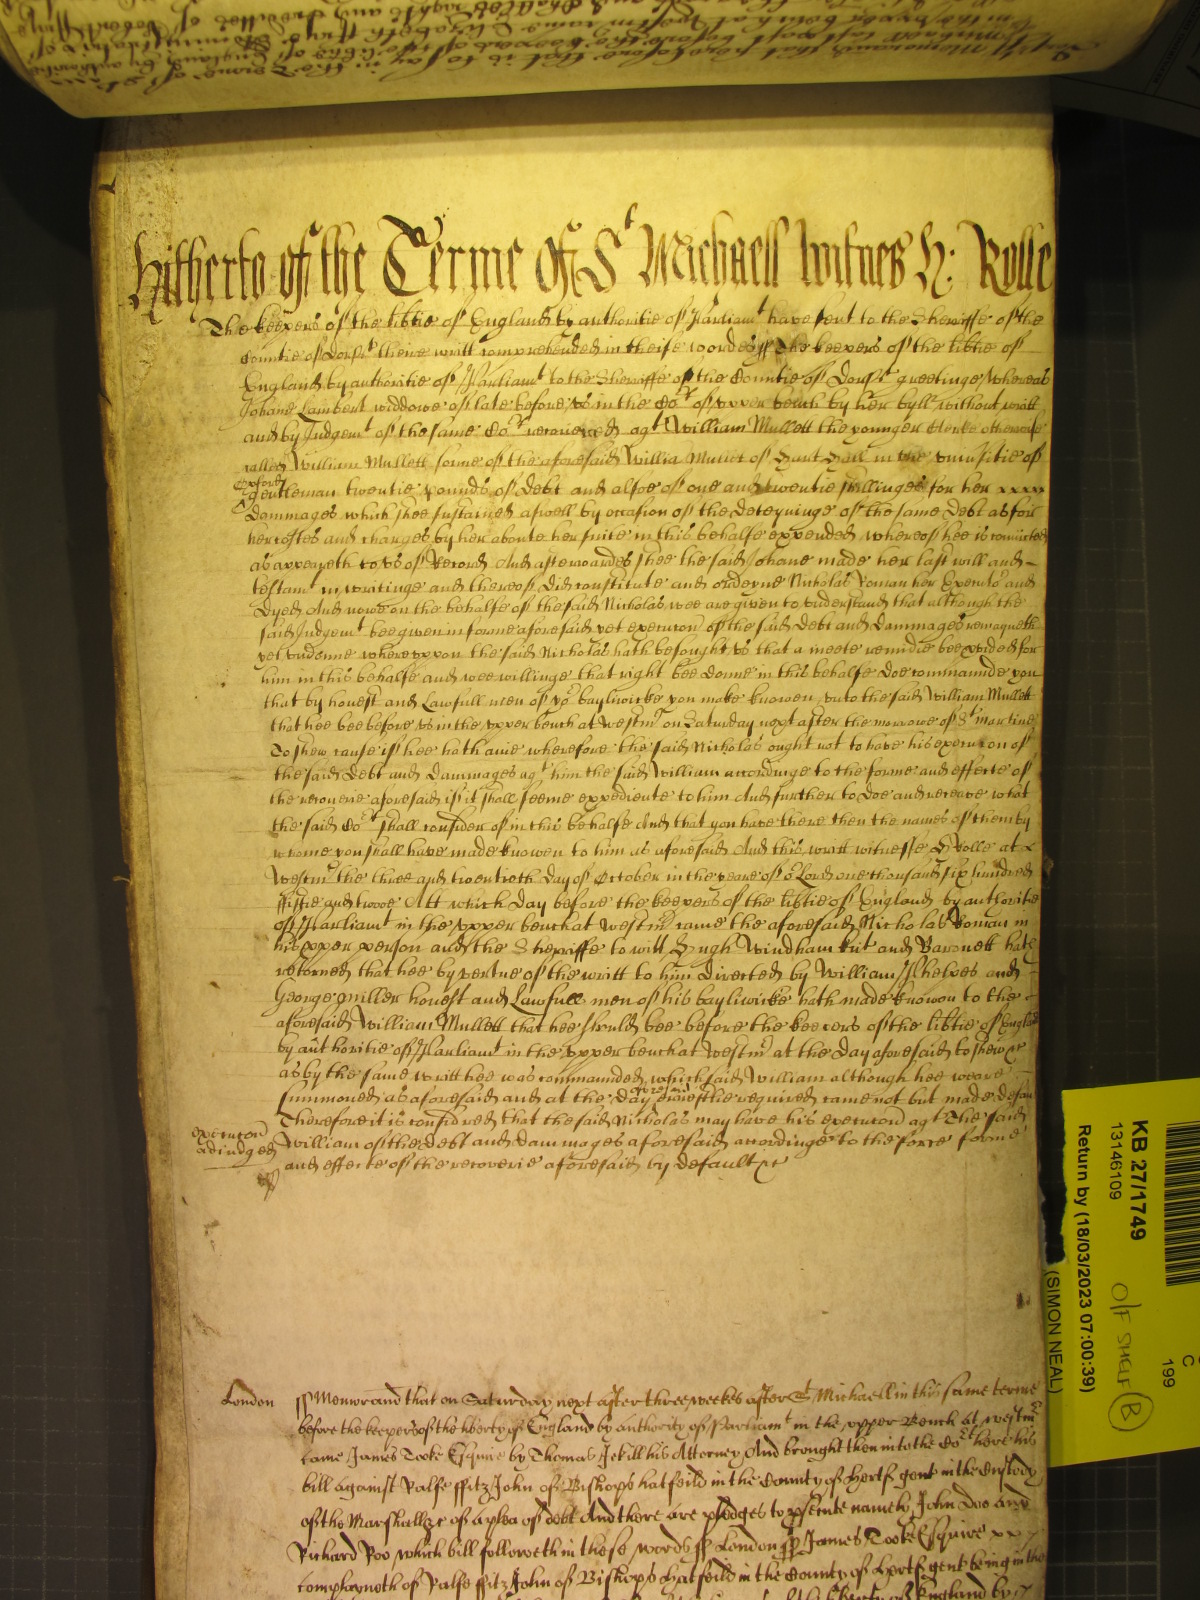 Hitherto of the Terme of St Michaell witnes H: Rolle
The keepers of the libtie of England by authoritie of Parliamt have sent to the Sheriffe of the
Countie of Dorst theire writt comprehended in theise wordes ss The keepers of the libtie of
England by authoritie of Parliamt to the Sheriffe of the Countie of Dorst greetinge Whereas
Johane Lambert widdowe of late before us in the Cort of upper bench by her byll without writt
and by Judgemt of the same Cort recovered agt William Mullett the younger Clerke otherwise
called William Mullett sonne of the aforesaid Willia Mullet of Hart Hall in the universitie of
Oxford
gentleman twentie pounds of Debt and alsoe of one and twentie shillinges for her xxxx
Dammages which shee sustained aswell by occasion of the deteyninge of the same Debt as for
her costes and charges by her aboute her suite in this behalfe expended whereof hee is convicted
as appeareth to us of Record And afterwardes shee the said Johane made her last will and
testamt in writinge and thereof did constitute and ordeyne Nicholas Roman her Executor and
dyed And nowe on the behalfe of the said Nicholas wee are given to understand that although the
said Judgemt bee given in forme aforesaid yet execucon of the said Debt and Dammages remayneth
yet undonne whereuppon the said Nicholas hath besought us that a meete remedie bee pvided for
him in this behalfe and wee willinge that right bee donne in this behalfe doe commannde you
that by honest and Lawfull men of yor bayliwicke you make knowen unto the said William Mullett
that hee bee before us in the upper bench at Westmr on Saturday next after the morrowe of St Martine
To shew cause if hee hath anie wherefore the said Nicholas ought not to have his execucon of
the said Debt and Dammages agt him the said William accordinge to the forme and effecte of
the recoverie aforesaid if it shall seeme expediente to him And further to doe and receave what
the said Cort shall consider of in this behalfe And that you have there then the names of them by
whome you shall have made knowen to him as aforesaid And this writt witnesse H Rolle at
Westmr the three and twentieth day of October in the yeare of or Lord one thousand six hundred
fiftie and twoe Att which day before the keepers of the libtie of England by authoritie
of Parliamt in the upper bench at Westmr came the aforesaid Nicholas Roman in
his pper person and the Sheriffe to witt Hugh Windham knt and Baronett hath
retorned that hee by vertue of the writt to him directed by William Phelpes and
George Miller honest and Lawfull men of his bayliwicke hath made knowen to the
aforesaid William Mullett that hee should bee before the keepers of the libtie of England
by authoritie of Parliamt in the upper bench at Westmr at the day aforesaid to shew &c
as by the same writt hee was commannded which said William although hee weare
summoned as aforesaid and at the day aforesaid sollempnely required came not but made default
Therefore it is considred that the said Nicholas may have his execucon agt The said
execucon
adiudged
William of the debt and dammages aforesaid accordinge to the force forme
and effecte of the recoverie aforesaid by default &c
London
ss Memorand that on Saturday next after three weekes after St Michaell in this same terme
before the keepers of the liberty of England by authority of Parliamt in the upper Bench at westmr
came James Tooke Esquire by Thomas Jekill his Attorney And brought then into the Cort here his
bill against Ralfe ffitz John of Bishops hatfeild in the County of Hertf gent in the Custody
of the Marshall &c of a plea of debt And there are pledges to psecute namely John Doe and
Richard Roo which bill followeth in these words ss London ss James Tooke Esquire xxx
complayneth of Ralfe ffitz John of Bishops hatfeild in the County of Hertf gent being in the
the liberty of England by
KB 27/1749
13146109
Return by (18/03/2023 07:00:39)
(SIMON NEAL)
O/F SHELF B
C
199